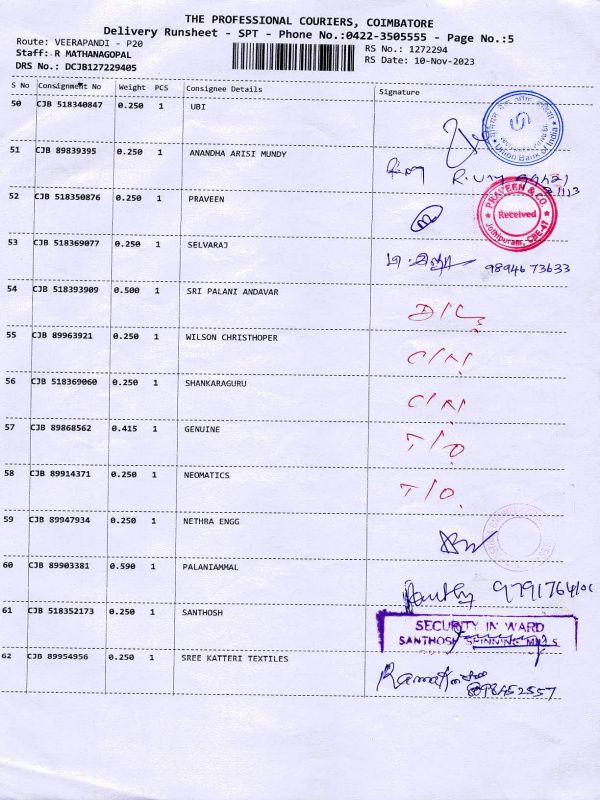 THE PROFESSIONAL COURIERS, COIMBATORE
Delivery Runsheet - SPT - Phone No.:0422-3505555 - Page No.:5
Route: VEERAPANDI - P20
Staff: R MATHANAGOPAL
DRS No.: DCJB127229405
RS No.: 1272294
RS Date: 10-Nov-2023
S No Consignment No Weight PCS Consignee Details Signature
50 CJB 518340847 0.250 1 UBI
Union Bank of India
51 CJB 89839395 0.250 1 ANANDHA ARISI MUNDY
52 CJB 518350876 0.250 1 PRAVEEN
PRAVEEN & CO.
Received
Jothipuram, CBE-47
53 CJB 518369077 0.250 1 SELVARAJ
98946 73633
54 CJB 518393909 0.500 1 SRI PALANI ANDAVAR
D/L
55 CJB 89963921 0.250 1 WILSON CHRISTHOPER
56 CJB 518369060 0.250 1 SHANKARAGURU
57 CJB 89868562 0.415 1 GENUINE
T/O
58 CJB 89914371 0.250 1 NEOMATICS
T/O
59 CJB 89947934 0.250 1 NETHRA ENGG
60 CJB 89903381 0.590 1 PALANIAMMAL
61 CJB 518352173 0.250 1 SANTHOSH
SECURITY IN WARD
SANTHOSH SPINNING MILLS
62 CJB 89954956 0.250 1 SREE KATTERI TEXTILES